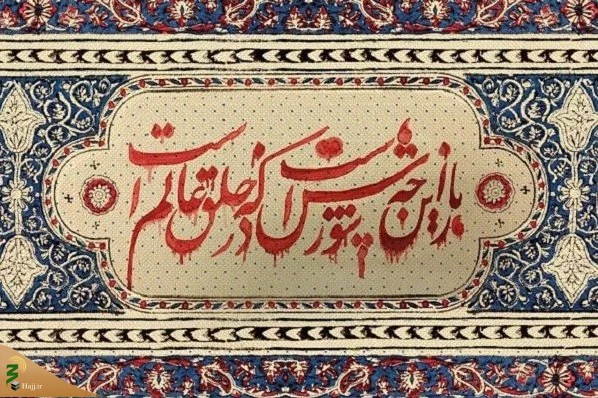 باز این چه شورش است که در خلق عالم است
Hajj.ir